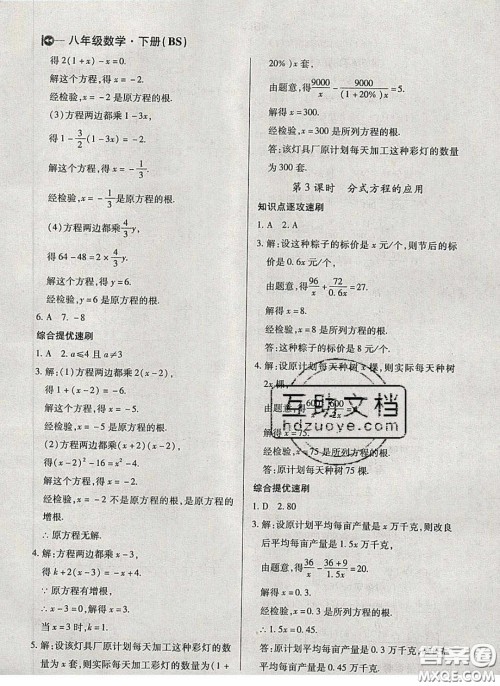 八年级数学·下册(BS)
得2(1+x)-x=0.
解这个方程,得x=-2.
经检验,x=-2是原方程的根.
(3)方程两边都乘1-3x,
得1-3/2(1-3x)=-1/2.
解这个方程,得x=-1/3.
经检验,x=-1/3是原方程的根.
(4)方程两边都乘4/3y,
得64-48=2×4/3y.
解这个方程,得y=6.
经检验,y=6是原方程的根.
6.A 7.-8
综合提优速刷
1.A 2.a≤4且a≠3
3.解:(1)方程两边都乘2(x-2),
得1+(x-2)=-6.
解这个方程,得x=-5.
经检验,x=-5是原方程的根.
(2)方程两边都乘(x+2)(x-2),
得(x-2)²-16=x²-4.
解这个方程,得x=-2.
经检验,x=-2不是原方程的根,是原方程的
增根.
∴原方程无解.
4.解:方程两边都乘x-3,
得k+2(x-3)=-x+4.
∵原方程有增根,
∴x-3=0,解得x=3.
当x=3时,k=1.
5.解:设该灯具厂原计划每天加工这种彩灯的数
量为x套,则实际每天加工彩灯的数量为(1+
20%)x套,
由题意,得9000/x-9000/((1+20%)x)=5.
解得x=300.
经检验,x=300是所列方程的根.
答:该灯具厂原计划每天加工这种彩灯的数量
为300套.
第3课时 分式方程的应用
知识点逐攻速刷
1.A 2.A
3.解:设这种粽子的标价是x元/个,则节后的标
价是0.6x元/个,
由题意,得96/x+72/0.6x=27.
解得x=8.
经检验,x=8是所列方程的根.
答:这种粽子的标价是8元/个.
4.解:设原计划每天种树x棵,则实际每天种树
2x棵,
由题意,得
解得x=75.
经检验,x=75是所列方程的根.
答:原计划每天种树75棵.
综合提优速刷
1.D 2.80
3.解:设原计划平均每亩产量是x万千克,则改良
后平均每亩产量是1.5x万千克,
由题意,得36/x-(36+9)/1.5x=20.
解得x=0.3.
经检验,x=0.3是所列方程的根.
∴1.5x=0.45.
答:改良后平均每亩产量是0.45万千克.
互助文档
hdzuoye.com
答案圈
MXQE.COM